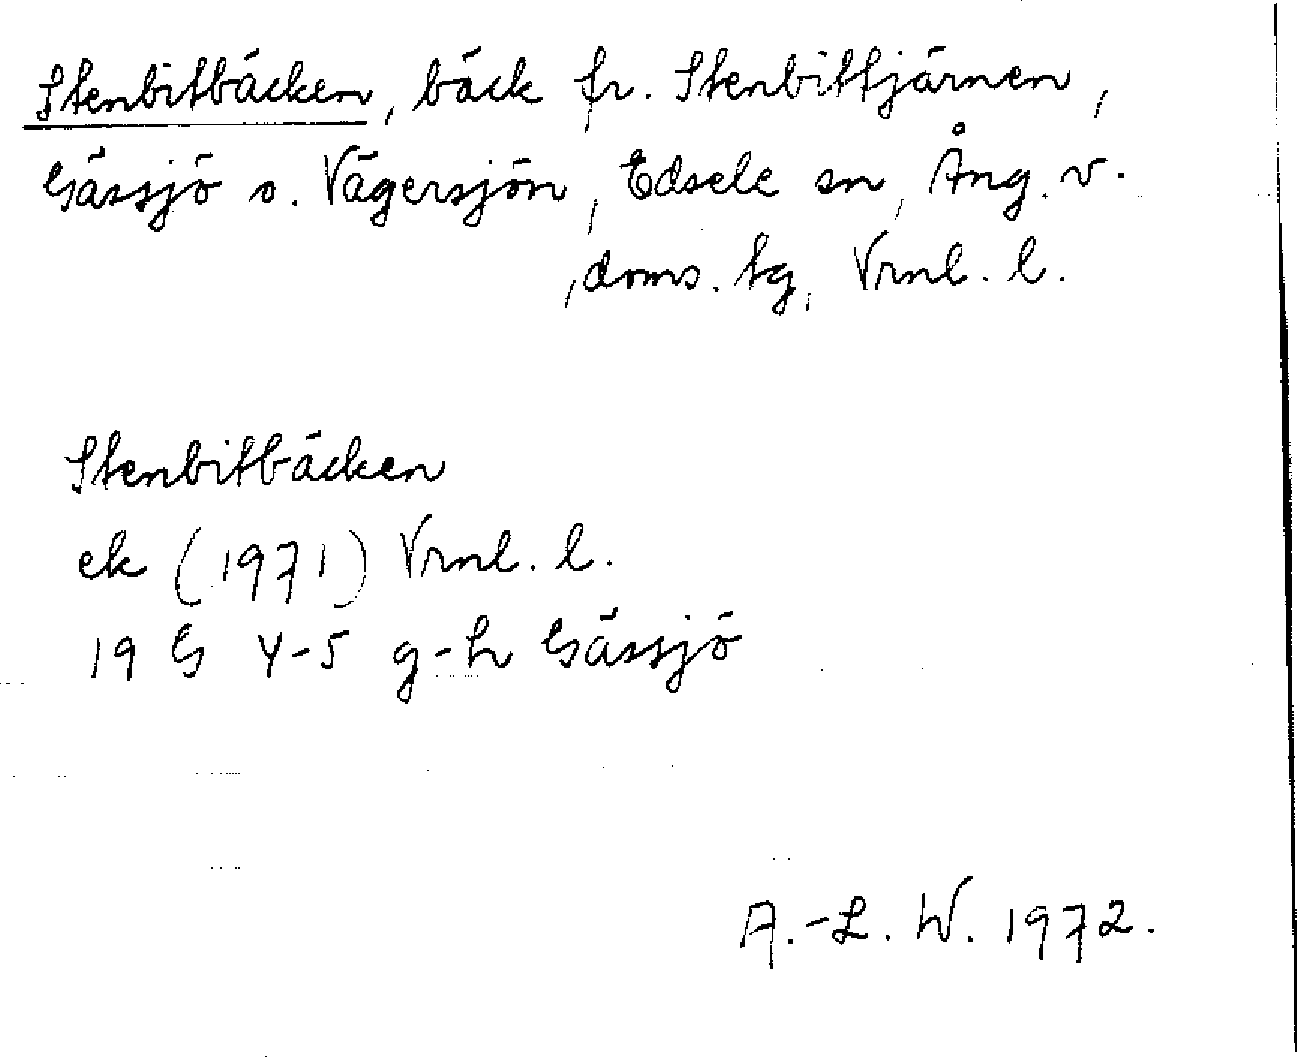 Stenbitbäcken, bäck fr. Stenbittjärnen,
Gässjö o. Vägersjön, Edsele sn, Ång. v.
doms. tg, Vrnl. l.
Stenbitbäcken
ek (1971) Vrnl. l.
19 G 4-5 g-h Gässjö
A.-L. W. 1972.